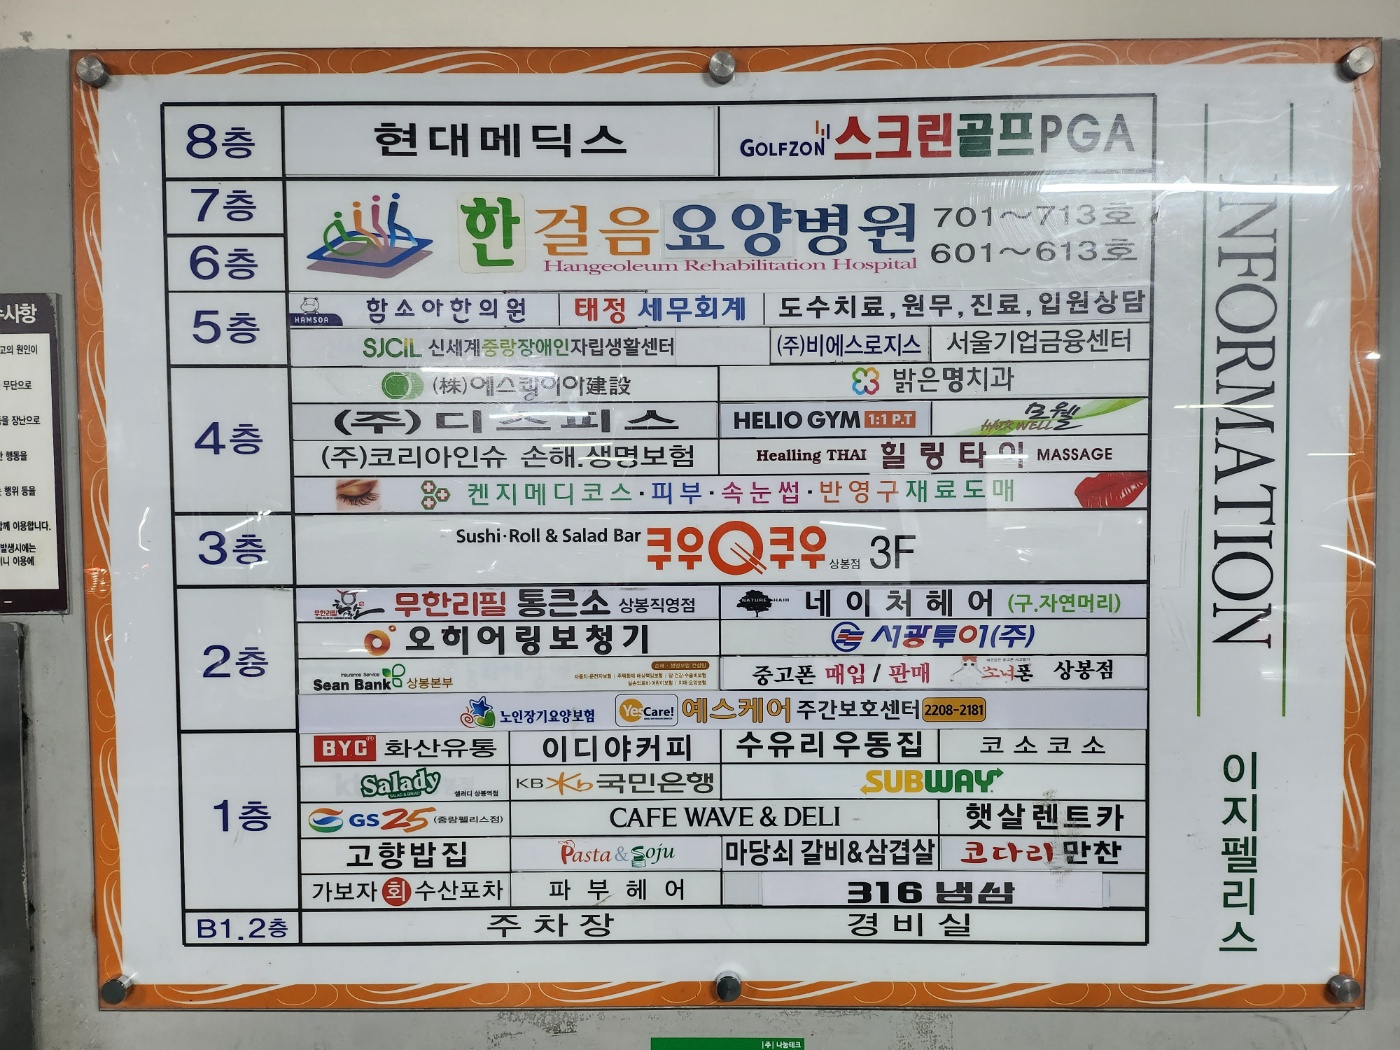 8층 현대메딕스 GOLFZON 스크린골프PGA
7층 한걸음요양병원 701~713호
6층 Hangeoleum Rehabilitation Hospital 601~613호
5층 HAMSOA 함소아한의원 태정 세무회계 도수치료,원무,진료,입원상담
SJCIL 신세계중랑장애인자립생활센터 (주)비에스로지스 서울기업금융센터
4층 (株)에스디아이建設 밝은명치과
(주)디즈피스 HELIO GYM 1:1 P.T 모웰 HAIR WELL
(주)코리아인슈 손해.생명보험 Healling THAI 힐링타이 MASSAGE
켄지메디코스·피부·속눈썹·반영구재료도매
3층 Sushi·Roll & Salad Bar 쿠우Q쿠우 상봉점 3F
2층 무한리필 통큰소 상봉직영점 NATURE HAIR 네이처헤어 (구.자연머리)
오히어링보청기 서광투이(주)
Insurance Service Sean Bank 상봉본부 중고폰 매입 / 판매 소녀폰 상봉점
노인장기요양보험 YesCare! 예스케어 주간보호센터 2208-2181
1층 BYC 화산유통 이디야커피 수유리우동집 코소코소
Salady 샐러디 상봉역점 KB 국민은행 SUBWAY
GS25 (중랑펠리스점) CAFE WAVE & DELI 햇살렌트카
고향밥집 Pasta & Soju 마당쇠 갈비&삼겹살 코다리만찬
가보자 회 수산포차 파부헤어 316 냉삼
B1.2층 주차장 경비실
INFORMATION
이지펠리스
수사항
고의 원인이
무단으로
등을 장난으로
행동을
행위 등을
함께 이용합니다.
발생시에는
이용에
(주) 나눔테크